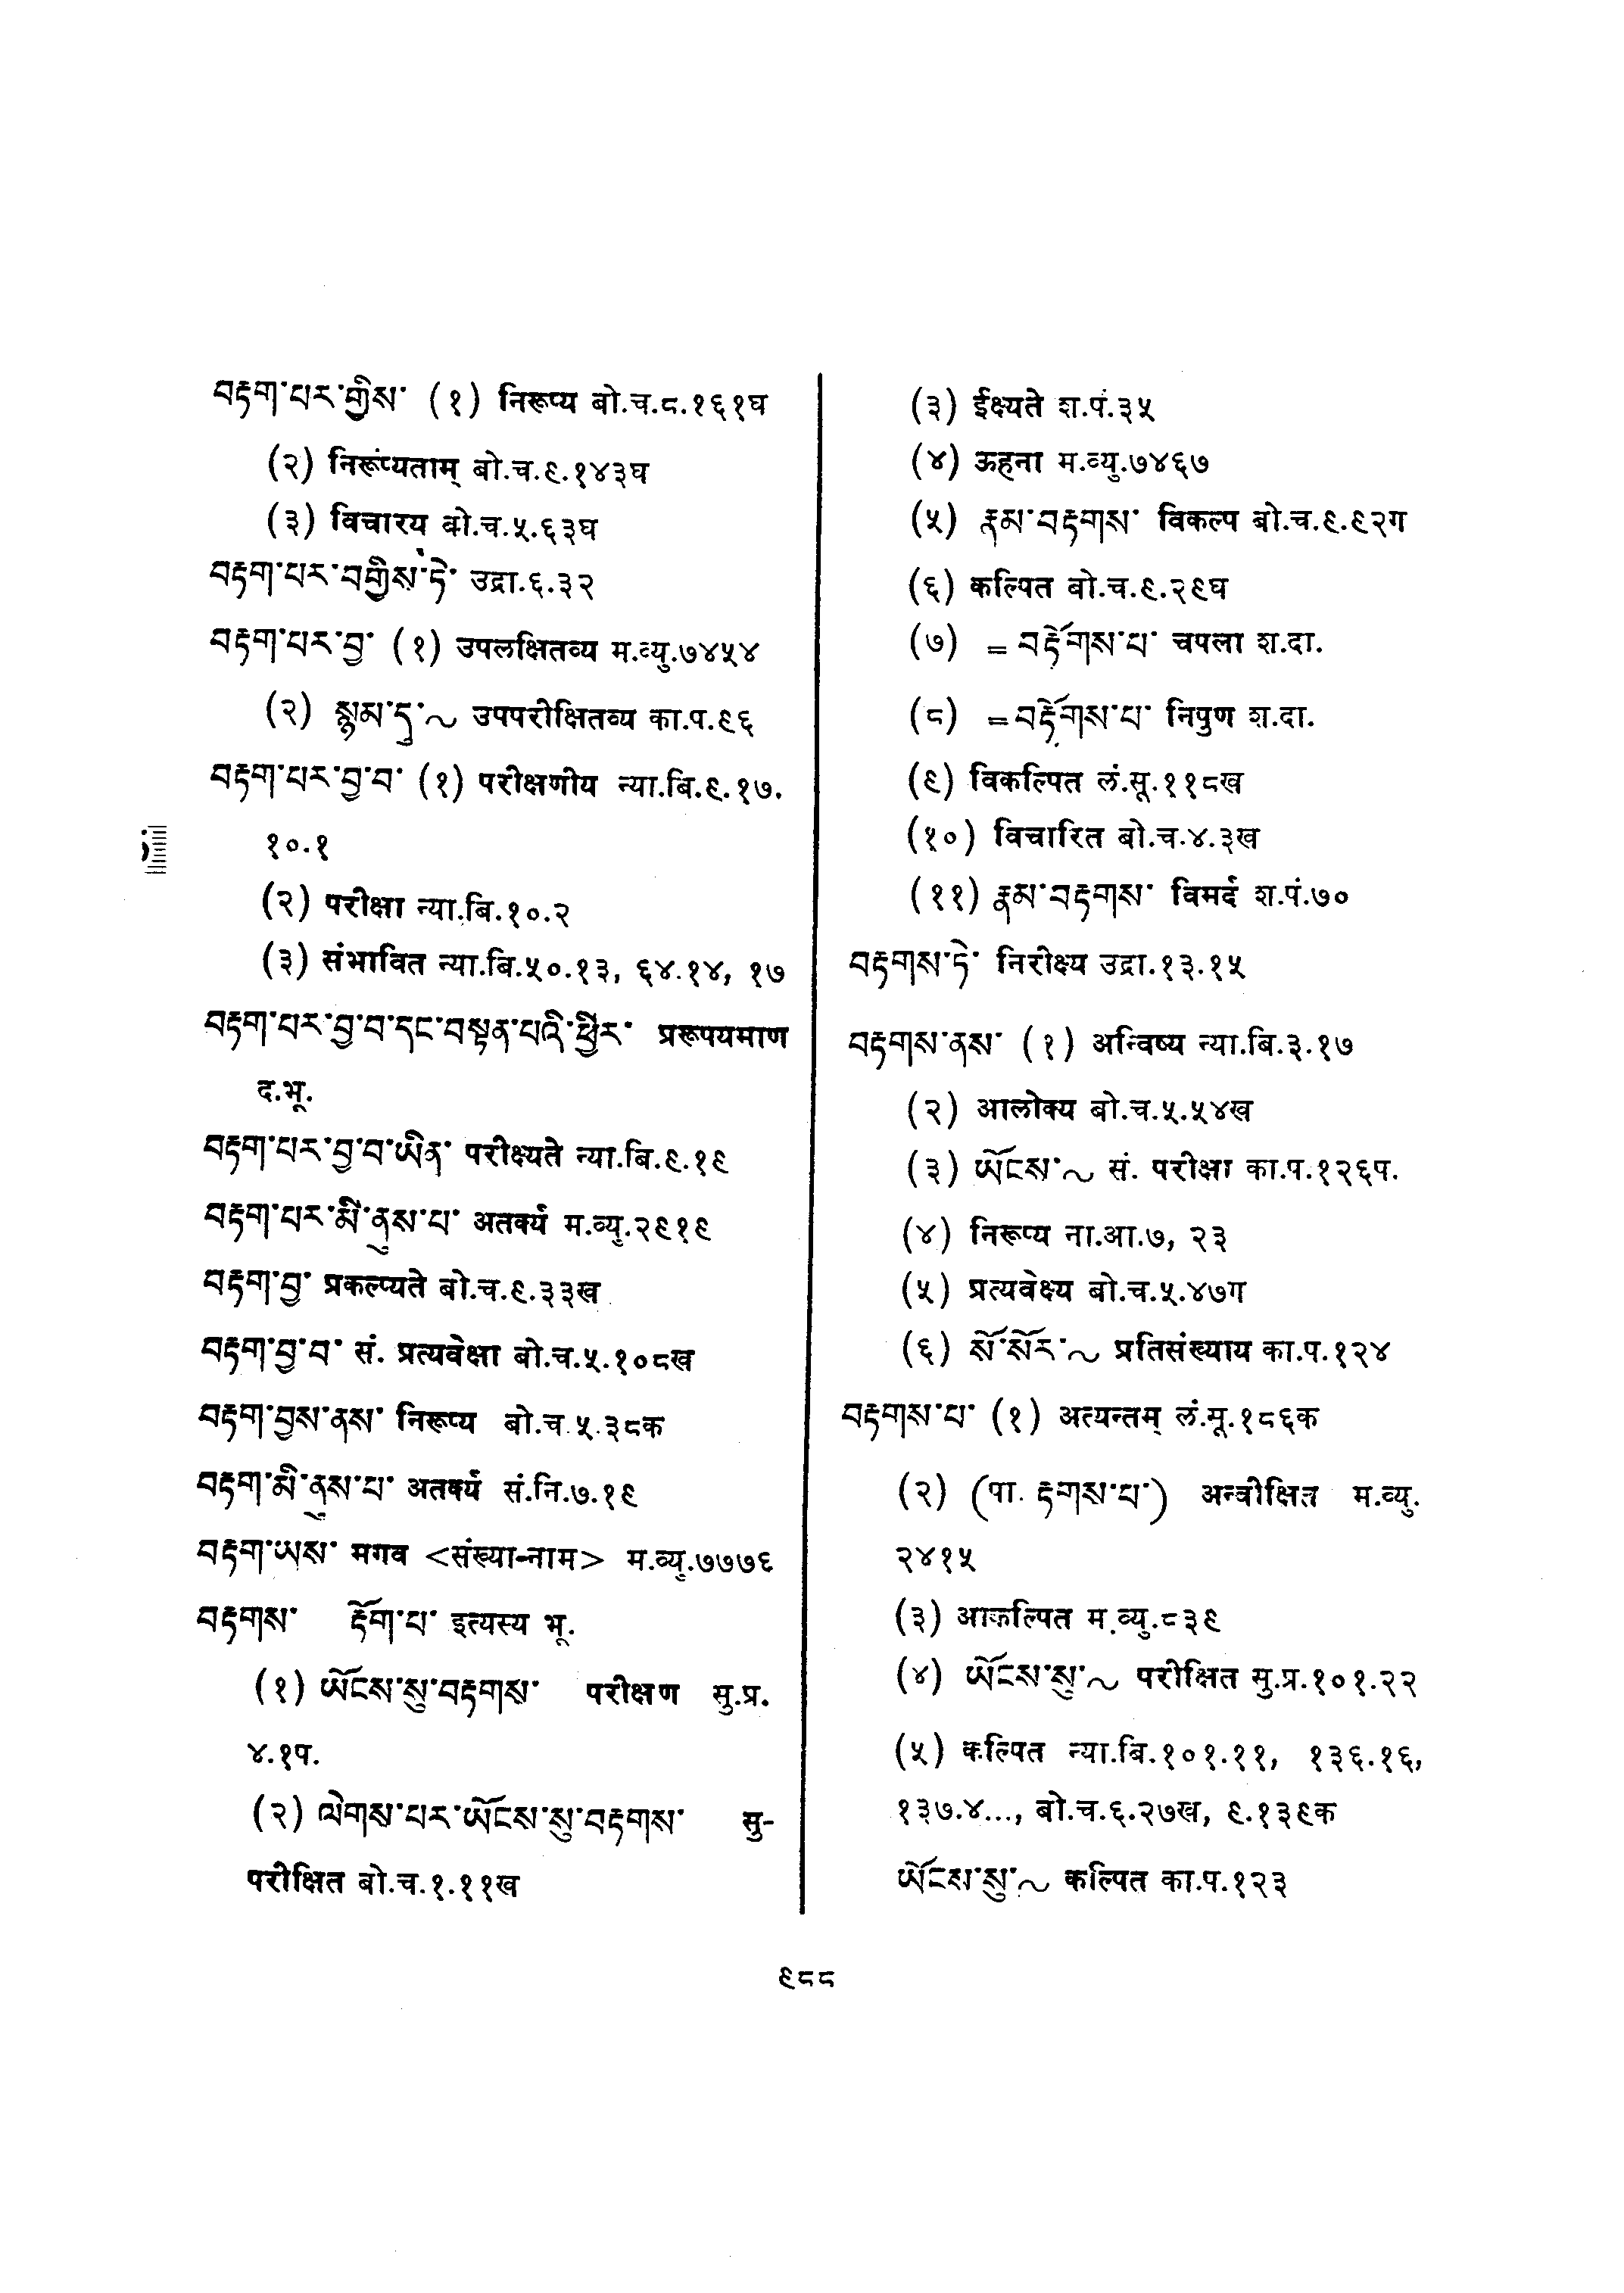 བརྟག་པར་གྱིས་ (१) निरूप्य बो.च.८.१६१घ
(२) निरूप्यताम् बो.च.९.१४३घ
(३) विचारय बो.च.५.६३घ
བརྟག་པར་བགྱིས་ཏེ་ उद्रा.६.३२
བརྟག་པར་བྱ་ (१) उपलक्षितव्य म.व्यु.७४५४
(२) སྙམ་དུ་~ उपपरीक्षितव्य का.प.९६
བརྟག་པར་བྱ་བ་ (१) परीक्षणीय न्या.बि.९.१७.
१०.१
(२) परीक्षा न्या.बि.१०.२
(३) संभावित न्या.बि.५०.१३, ६४.१४, १७
བརྟག་པར་བྱ་བ་དང་བསྟན་པའི་ཕྱིར་ प्ररूपयमाण
द.भू.
བརྟག་པར་བྱ་བ་ཡིན་ परीक्ष्यते न्या.बि.९.१९
བརྟག་པར་མི་ནུས་པ་ अतर्क्य म.व्यु.२९१९
བརྟག་བྱ་ प्रकल्प्यते बो.च.९.३३ख
བརྟག་བྱ་བ་ सं. प्रत्यवेक्षा बो.च.५.१०८ख
བརྟག་བྱས་ནས་ निरूप्य बो.च.५.३८क
བརྟག་མི་ནུས་པ་ अतर्क्य सं.नि.७.१९
བརྟག་ཡས་ मगव <संख्या-नाम> म.व्यु.७७७६
བརྟགས་ རྟོག་པ་ इत्यस्य भू.
(१) ཡོངས་སུ་བརྟགས་ परीक्षण सु.प्र.
४.१प.
(२) ལེགས་པར་ཡོངས་སུ་བརྟགས་ सु-
परीक्षित बो.च.१.११ख
(३) ईक्ष्यते श.पं.३५
(४) ऊहना म.व्यु.७४६७
(५) རྣམ་བརྟགས་ विकल्प बो.च.९.९२ग
(६) कल्पित बो.च.९.२९घ
(७) =བརྟོགས་པ་ चपला श.दा.
(८) =བརྟོགས་པ་ निपुण श.दा.
(९) विकल्पित लं.सू.११८ख
(१०) विचारित बो.च.४.३ख
(११) རྣམ་བརྟགས་ विमर्द श.पं.७०
བརྟགས་ཏེ་ निरीक्ष्य उद्रा.१३.१५
བརྟགས་ནས་ (१) अन्विष्य न्या.बि.३.१७
(२) आलोक्य बो.च.५.५४ख
(३) ཡོངས་~ सं. परीक्षा का.प.१२६प.
(४) निरूप्य ना.आ.७, २३
(५) प्रत्यवेक्ष्य बो.च.५.४७ग
(६) སོ་སོར་~ प्रतिसंख्याय का.प.१२४
བརྟགས་པ་ (१) अत्यन्तम् लं.सू.१८६क
(२) (पा. རྟགས་པ་) अन्वीक्षित म.व्यु.
२४१५
(३) आकल्पित म.व्यु.८३९
(४) ཡོངས་སུ་~ परीक्षित सु.प्र.१०१.२२
(५) कल्पित न्या.बि.१०१.११, १३६.१६,
१३७.४..., बो.च.६.२७ख, ९.१३९क
ཡོངས་སུ་~ कल्पित का.प.१२३
९८८